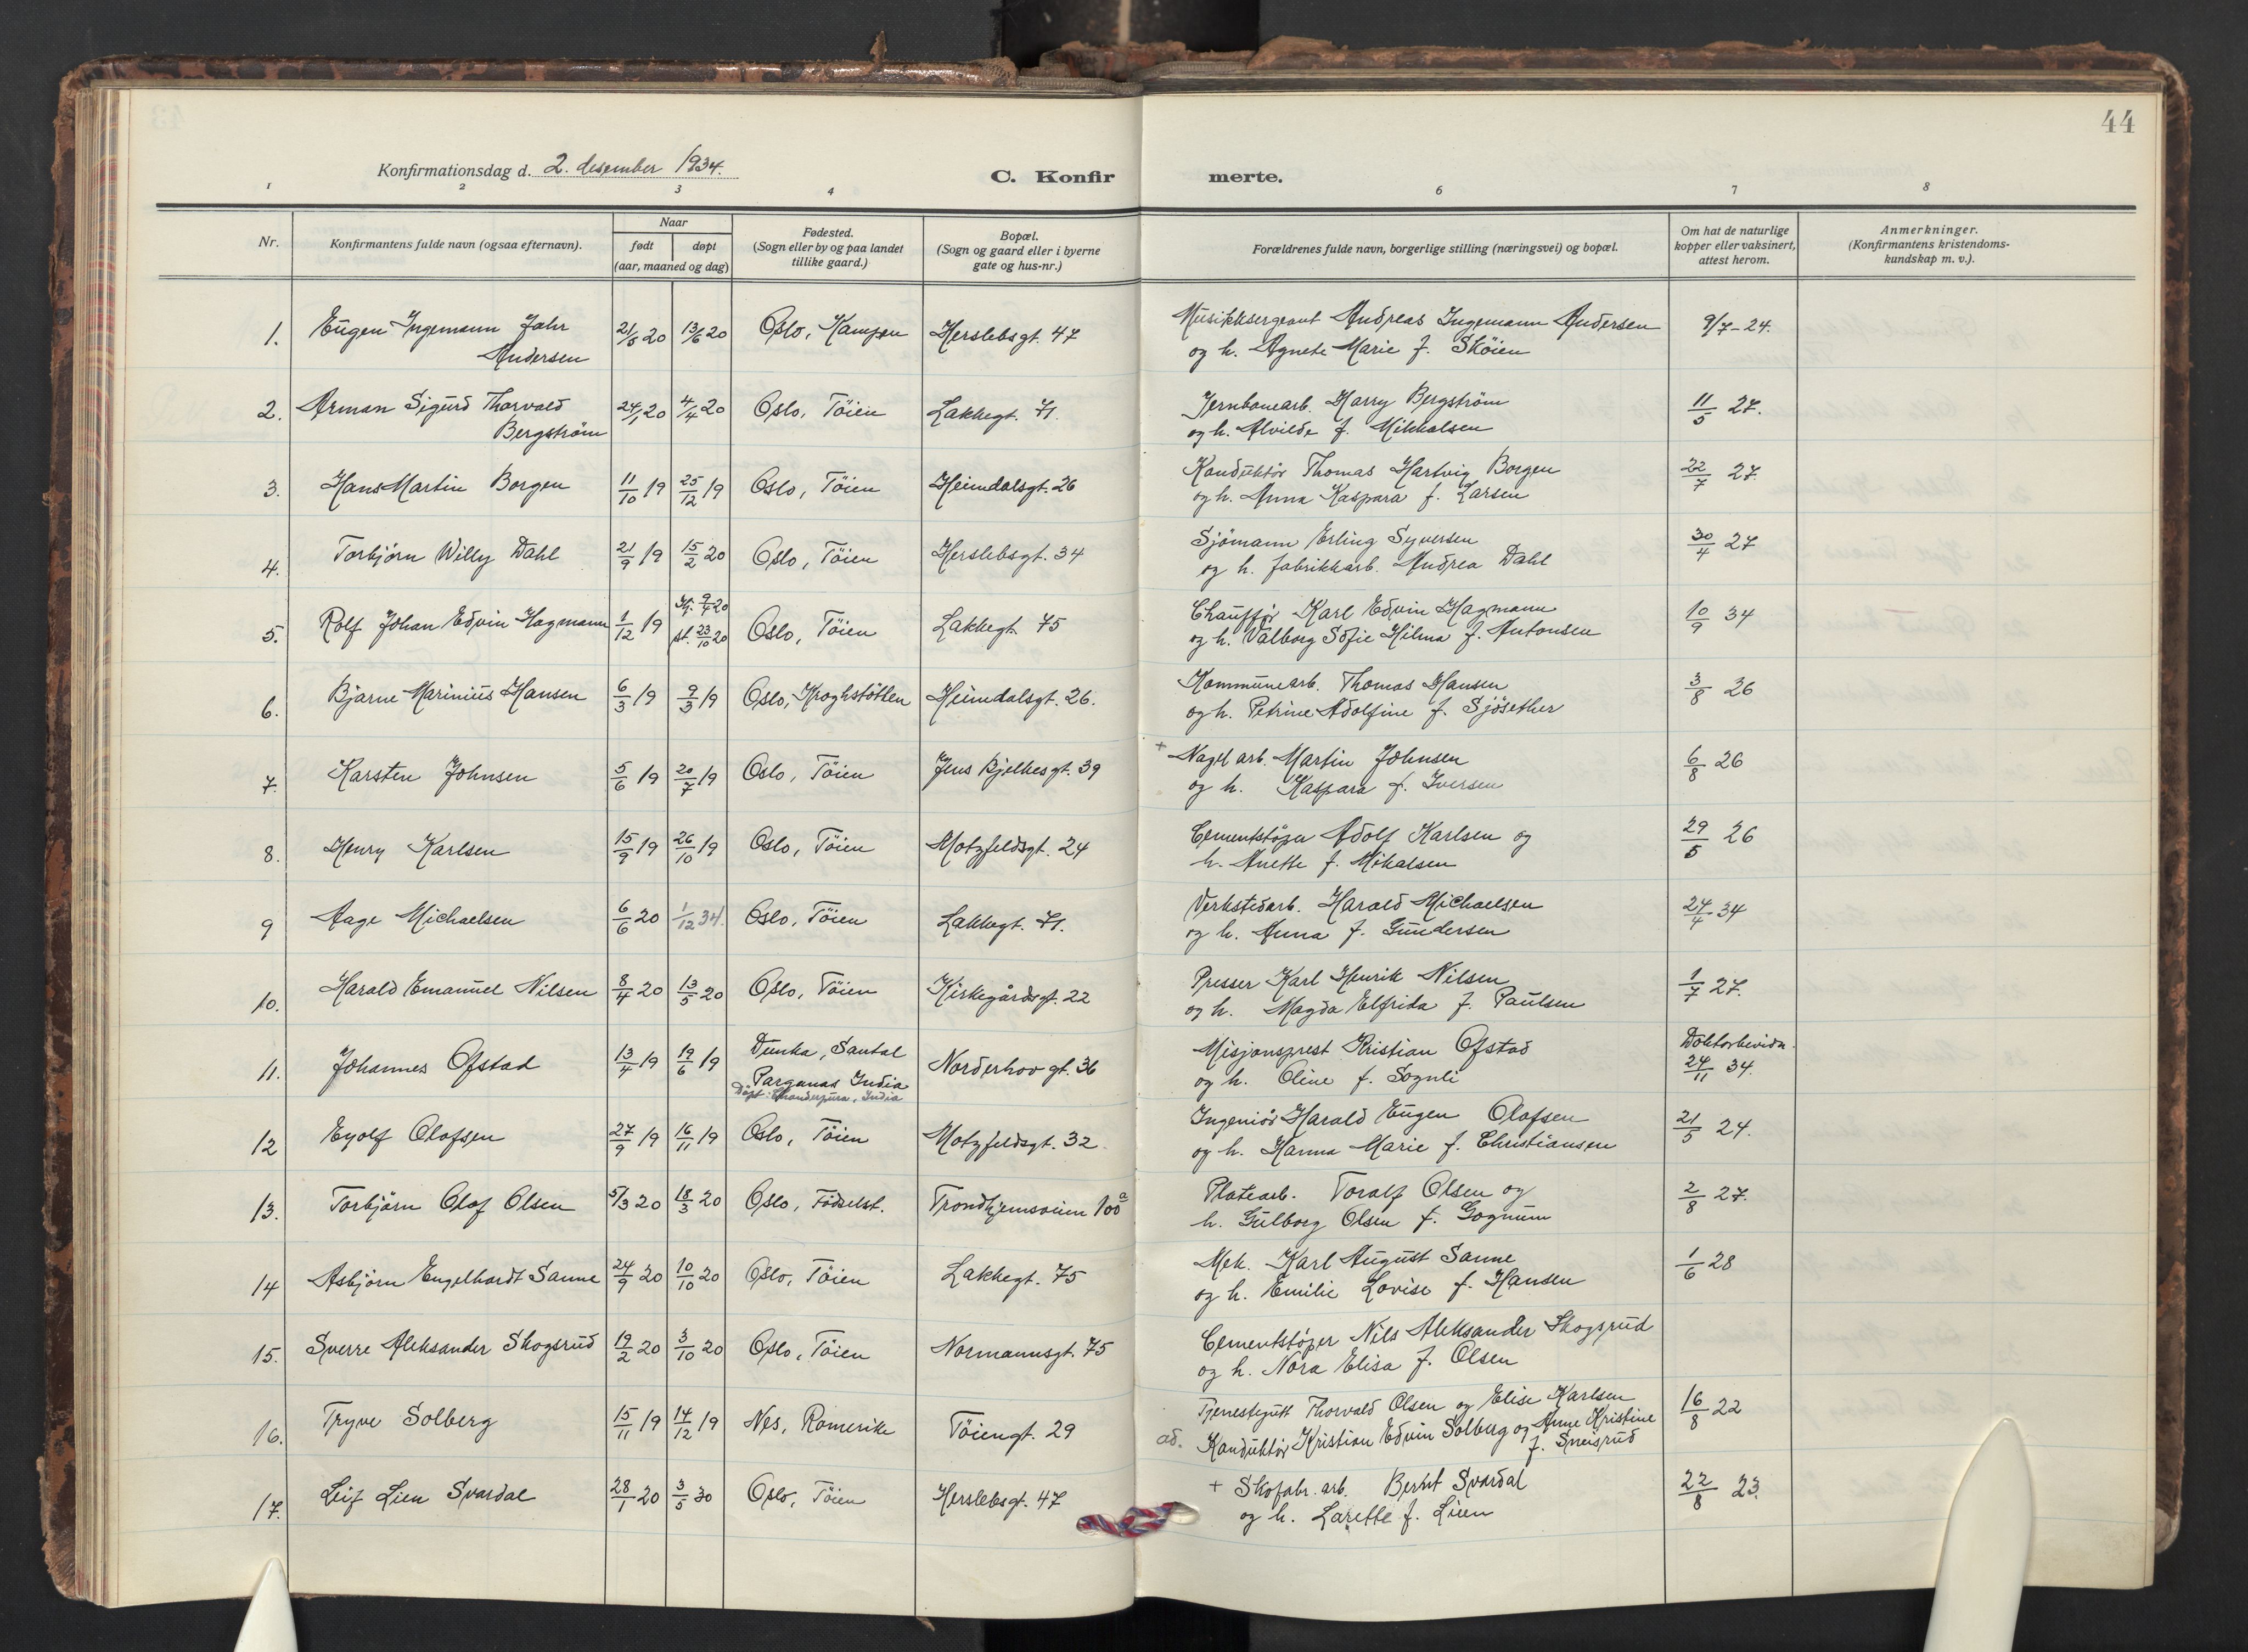 44
Konfirmationsdag d. 2. desember 1934.
C. Konfirmerte.
1 2 3 4 6 7 8
Nr. Konfirmantens fulde navn (ogsaa efternavn). Naar født døpt (aar, maaned og dag) Fødested. (Sogn eller by og paa landet tillike gaard.) Bopæl. (Sogn og gaard eller i byerne gate og hus-nr.) Forældrenes fulde navn, borgerlige stilling (næringsvei) og bopæl. Om hat de naturlige kopper eller vaksinert, attest herom. Anmerkninger. (Konfirmantens kristendoms-kundskap m. v.).
1. Eugen Ingemann Jahr 21/5 20 13/6 20 Oslo, Kampen Herslebsgt. 47 Musikksergeant Andreas Ingemann Andersen 9/7-24.
Andersen og h. Agnete Marie f. Sköien
2. Arman Sigurd Thorvald 24/1 20 4/4 20 Oslo, Töien Lakkegt. 71. Jernbanearb. Harry Bergström 11/5 27.
Bergström og h. Alvilde f. Mikkalsen
3. Hans Martin Borgen 11/10 19 25/12 19 Oslo, Töien Heimdalsgt. 26 Konduktör Thomas Hartvig Borgen 22/7 27.
og h. Anna Kaspara f. Larsen
4. Torbjörn Willy Dahl 21/9 19 15/2 20 Oslo, Töien Herslebsgt. 34 Sjömann Erling Syversen 30/4 27
og h. fabrikkarb. Andrea Dahl
5. Rolf Johan Edvin Hagmann 1/12 19 Hj. 9/4 20 st. 23/10 20 Oslo, Töien Lakkegt. 75 Chauffør Karl Edvin Hagmann 10/9 34
og h. Valborg Sofie Hilma f. Antonsen
6. Bjarne Marinius Hansen 6/3 19 9/3 19 Oslo, Kroghstötten Heimdalsgt. 26. Kommunearb. Thomas Hansen 3/8 26
og h. Petrine Adolfine f. Sjösether
7. Karsten Johnsen 5/6 19 20/7 19 Oslo, Töien Jens Bjelkesgt. 39 + Nagel arb. Martin Johnsen 6/8 26
og h. Kaspara f. Iversen
8. Henry Karlsen 15/9 19 26/10 19 Oslo, Töien Motzfeldsgt. 24 Cementstöper Adolf Karlsen og 29/5 26
h. Anette f. Mikalsen
9 Aage Michaelsen 6/6 20 1/12 34. Oslo, Töien Lakkegt. 71. Verkstedarb. Harald Michaelsen 24/4 34
og h. Anna f. Gundersen
10. Harald Emanuel Nilsen 8/4 20 13/5 20 Oslo, Töien Kirkegårdsgt. 22 Presser Karl Henrik Nilsen 1/7 27.
og h. Magda Elfrida f. Paulsen
11. Johannes Ofstad 13/4 19 19/6 19 Dumka, Santal Norderhovgt. 36 Misjonsprest Kristian Ofstad Doktorbevidn.
Parganas India og h. Oline f. Sognli 24/11 34.
Döpt: India
12 Eyolf Olafsen 27/9 19 16/11 19 Oslo, Töien Motzfeldsgt. 32. Ingeniör Harald Eugen Olafsen 21/5 24.
og h. Hanna Marie f. Christiansen
13. Torbjörn Olaf Olsen 5/3 20 18/3 20 Oslo, Födselst. Trondhjemsveien 100 a Platearb. Toralf Olsen og 2/8 27.
h. Gulborg Olsen f. Gognum
14 Asbjörn Engelhardt Sanne 24/9 20 10/10 20 Oslo, Töien Lakkegt. 75 Mek. Karl August Sanne 1/6 28
og h. Emilie Lovise f. Hansen
15. Sverre Aleksander Skogsrud 19/2 20 3/10 20 Oslo, Töien Normannsgt. 75 Cementstöper Nils Aleksander Skogsrud
og h. Nora Elisa f. Olsen
16. Tryve Solberg 15/11 19 14/12 19 Nes, Romerike Töiengt. 29 Tjenestegutt Thorvald Olsen og Elise Karlsen 16/8 22
ad. Konduktör Kristian Edvin Solberg og Anne Kristine
f. Sneisrud
17. Leif Lien Svardal 28/1 20 3/5 30 Oslo, Töien Herslebsgt. 47 + Skofabr. arb. Bernt Svardal 22/8 23.
og h. Larette f. Lien